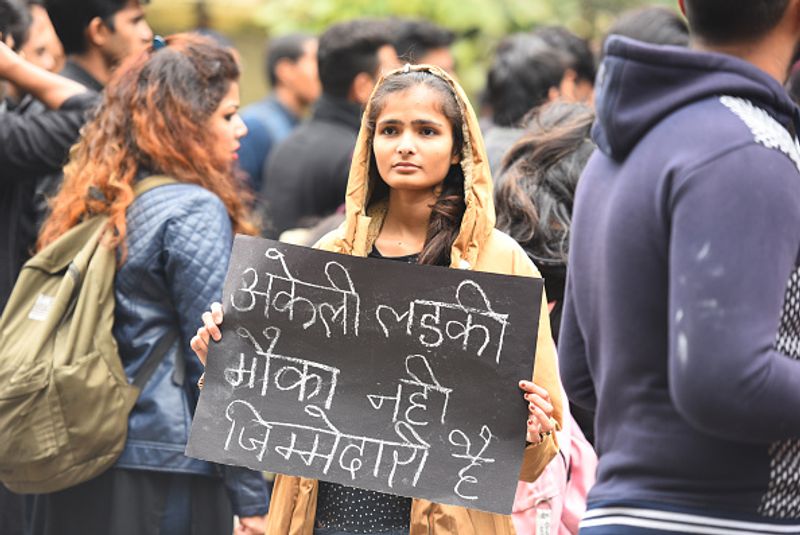 अकेली लड़की
मौका नहीं
जिम्मेदारी है